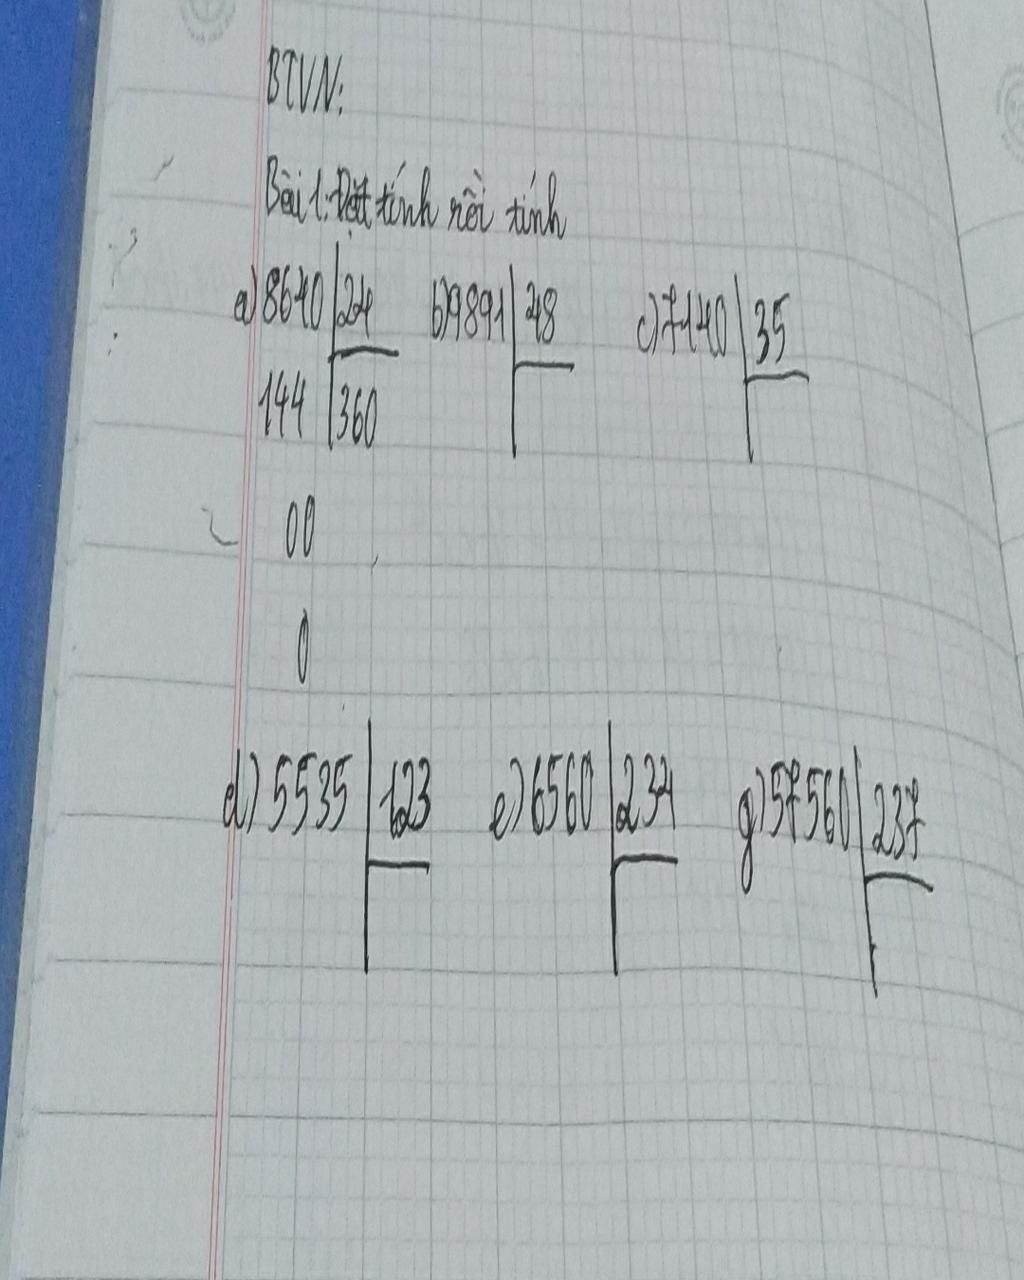 BTVN:
Bài 1: Đặt tính rồi tính
a) 8640 24 b) 9891 48 c) 7140 35
144 360
00
0
d) 5535 123 e) 6560 234 g) 57560 237